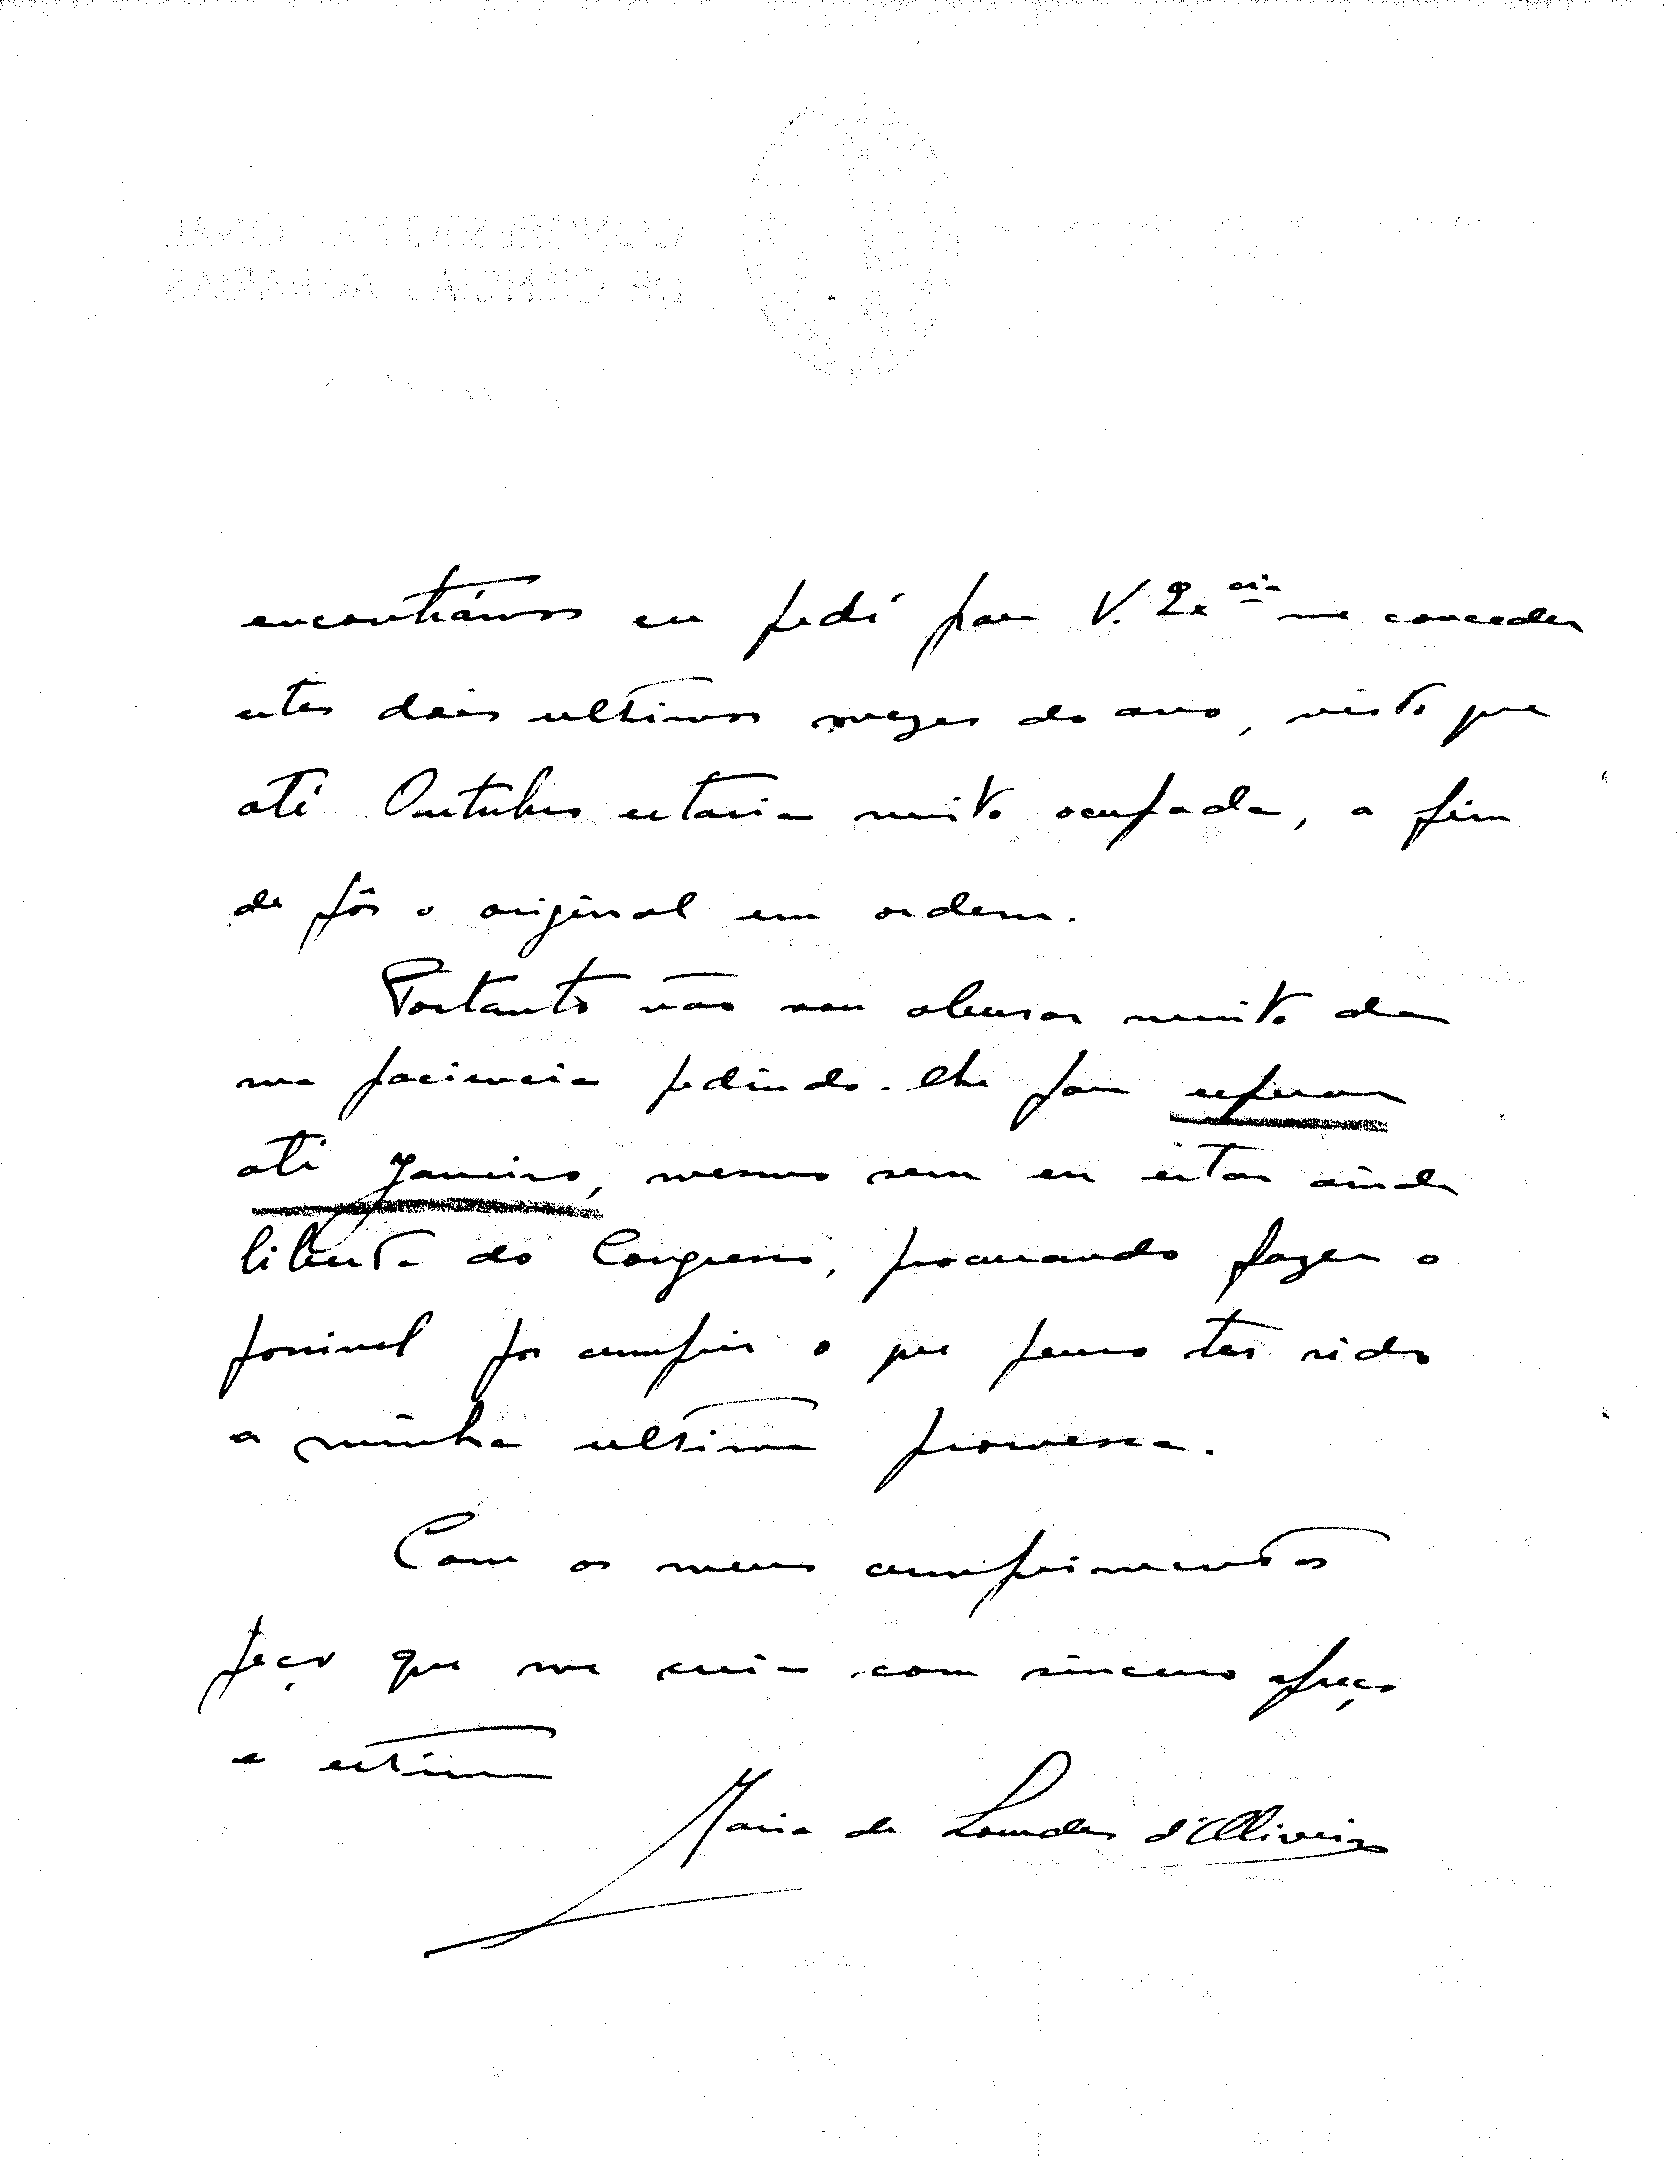 encontrámos eu pedi para V. Ex.cia me conceder
estes dois ultimos mezes do ano, visto que
até Outubro estaria muito ocupada, a fim
de pôr o original em ordem.
Portanto não vou abusar muito da
sua paciencia pedindo-lhe para esperar
até Janeiro, mesmo sem eu estar ainda
liberta do Congresso, procurando fazer o
possivel por cumprir o que penso ter sido
a minha ultima promessa.
Com os meus cumprimentos
peço que me creia com sincero apreço
e estima
Maria de Lourdes d'Oliveira